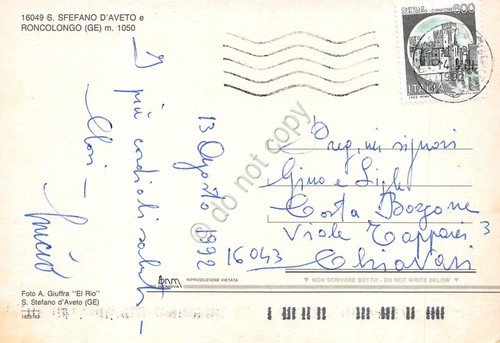 16049 S. SFEFANO D'AVETO e
RONCOLONGO (GE) m. 1050
I più cordiali saluti -
13 Agosto 1992
Pregimi signori
Gino e
Costa Borzone
Viale Tappani 3
16043 Chiavari
CASTELLO
800
ITALIA
do not copy
Foto A. Giuffra "El Rio"
S. Stefano d'Aveto (GE)
RIPRODUZIONE VIETATA
▼ NON SCRIVERE SOTTO - DO NOT WRITE BELOW ▼